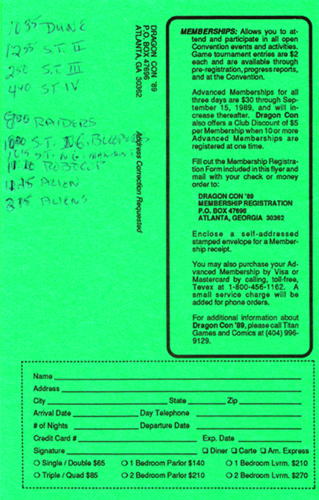 1035 DUNE
1255 S.T. II
250 S.T. III
440 ST IV
800 RAIDERS
1000 S.T. N.G. BLOOPERS
S.T. N.G.
ROBOCOP
1245 ALIEN
245 ALIENS
DRAGON CON '89
P.O. BOX 47696
ATLANTA, GA 30362
Address Correction Requested
MEMBERSHIPS: Allows you to at-
tend and participate in all open
Convention events and activities.
Game tournament entries are $2
each and are available through
pre-registration, progress reports,
and at the Convention.
Advanced Memberships for all
three days are $30 through Sep-
tember 15, 1989, and will in-
crease thereafter. Dragon Con
also offers a Club Discount of $5
per Membership when 10 or more
Advanced Memberships are
registered at one time.
Fill out the Membership Registra-
tion Form included in this flyer and
mail with your check or money
order to:
DRAGON CON '89
MEMBERSHIP REGISTRATION
P.O. BOX 47696
ATLANTA, GEORGIA 30362
Enclose a self-addressed
stamped envelope for a Member-
ship receipt.
You may also purchase your Ad-
vanced Membership by Visa or
Mastercard by calling, toll-free,
Tevex at 1-800-456-1162. A
small service charge will be
added for phone orders.
For additional information about
Dragon Con '89, please call Titan
Games and Comics at (404) 996-
9129.
Name
Address
City State Zip
Arrival Date Day Telephone
# of Nights Departure Date
Credit Card # Exp. Date
Signature Diner Carte Am. Express
Single / Double $65 1 Bedroom Parlor $140 1 Bedroom Lvrm. $210
Triple / Quad $85 2 Bedroom Parlor $210 2 Bedroom Lvrm. $270